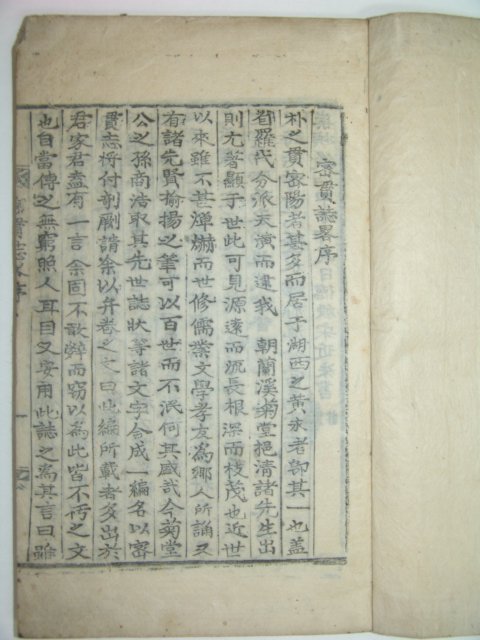 密貫誌畧序
朴之貫密陽者甚多而居于湖西之黃永者卽其一也盖
羅代分派天演而逮我 朝蘭溪菊堂挹清諸先生出
則尤著顯于世此可見源遠而流長根深而枝茂也近世
以來雖不甚燀爀而世修儒業文學孝友爲鄉人所誦又
有諸先賢揄揚之筆可以百世而不泯何其盛哉今菊堂
公之孫商浩取其先世誌狀等諸文字合成一編名以密
貫志将付剞劂請余以弁卷之文曰此編所載者多出於
君家君盍有一言余固不敢辤而窃以爲此皆不朽之文
也自當傳之無窮照人耳目又安用此誌之爲其言曰雖